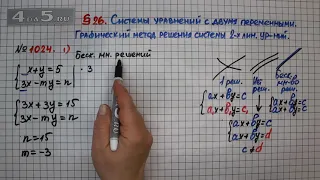 4au5.ru
§26. Системы уравнений с двумя переменными.
Графический метод решения системы 2-х лин. ур-ний.
№1024. 1) Беск. мн. решений
x+y=5 | ·3
3x-my=n
3x+3y=15
3x-my=n
n=15
m=-3
1 реш. реш. Беск. мн-во реш.
ax+by=c
ax+by=c
ax+by=c
ax+by=d
c≠d